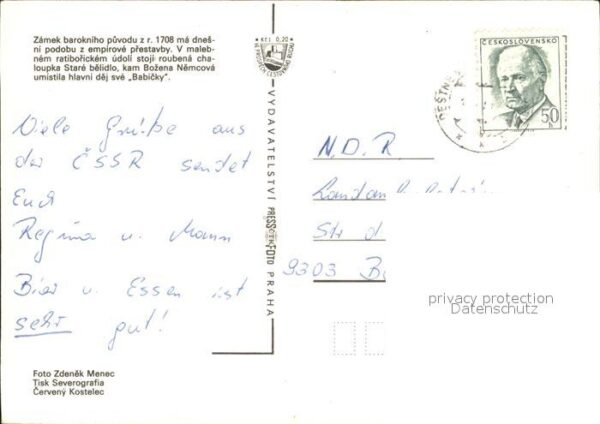 Zámek barokního původu z r. 1708 má dneš-
ní podobu z empirové přestavby. V malebném
ném ratibořickém údolí stojí roubená cha-
loupka Staré bělidlo, kam Božena Němcová
umístila hlavní děj své „Babičky“.
Viele Grüße aus
der ČSSR sendet
Euch
Regina u. Mann
Bier u. Essen ist
sehr gut!
Foto Zdeněk Menec
Tisk Severografia
Červený Kostelec
KčS 0,20
VE PROSPĚCH CESTOVNÍHO RUCHU
VYDAVATELSTVÍ PRESSFOTO PRAHA
ČESKOSLOVENSKO
50 h
N.D.R
Str d
9303 B
privacy protection
Datenschutz